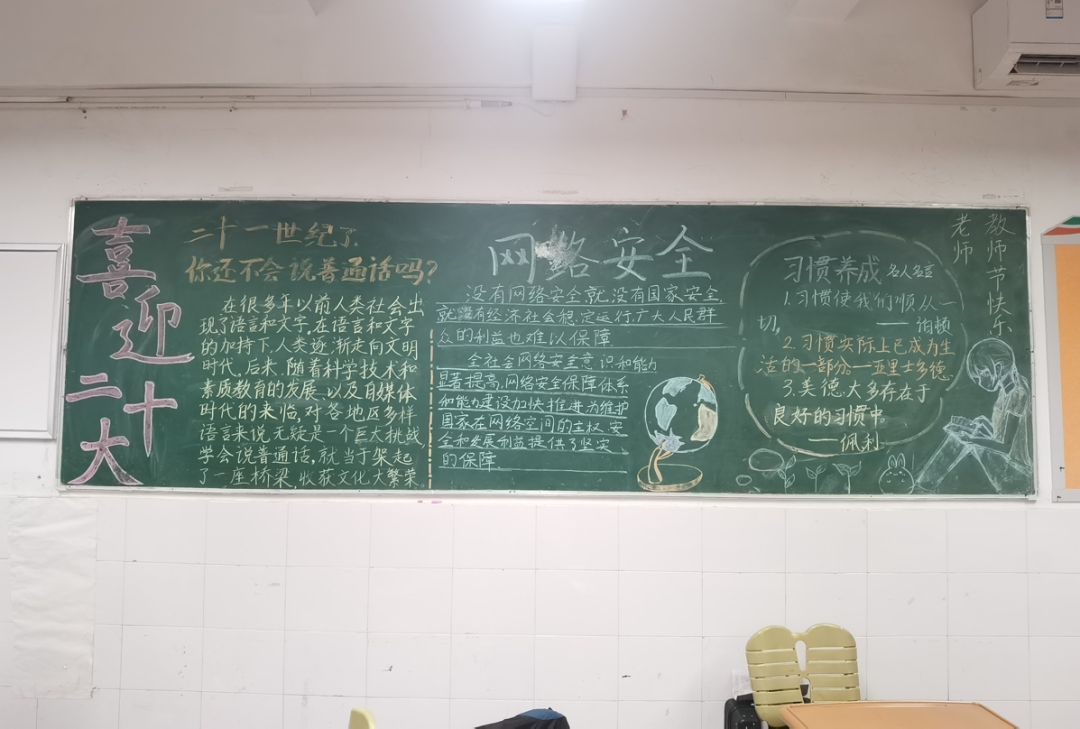 喜迎二十大
二十一世纪了，
你还不会说普通话吗？
在很多年以前人类社会出
现了语言和文字，在语言和文字
的加持下人类逐渐走向文明
时代。后来，随着科学技术和
素质教育的发展，以及自媒体
时代的来临，对各地区多样
语言来说无疑是一个巨大挑战
学会说普通话，就当于架起
了一座桥梁，收获文化大繁荣
网络安全
没有网络安全就没有国家安全，
就没有经济社会稳定运行，广大人民群
众的利益也难以保障
全社会网络安全意识和能力
显著提高，网络安全保障体系
和能力建设加快推进，为维护
国家在网络空间的主权、安
全和发展利益提供了坚实
的保障。
习惯养成 名人名言
1.习惯使我们顺从一
切，——伯顿
2.习惯实际上已成为生
活的一部分——亚里士多德
3.美德大多存在于
良好的习惯中
——佩利
教师节快乐
老师